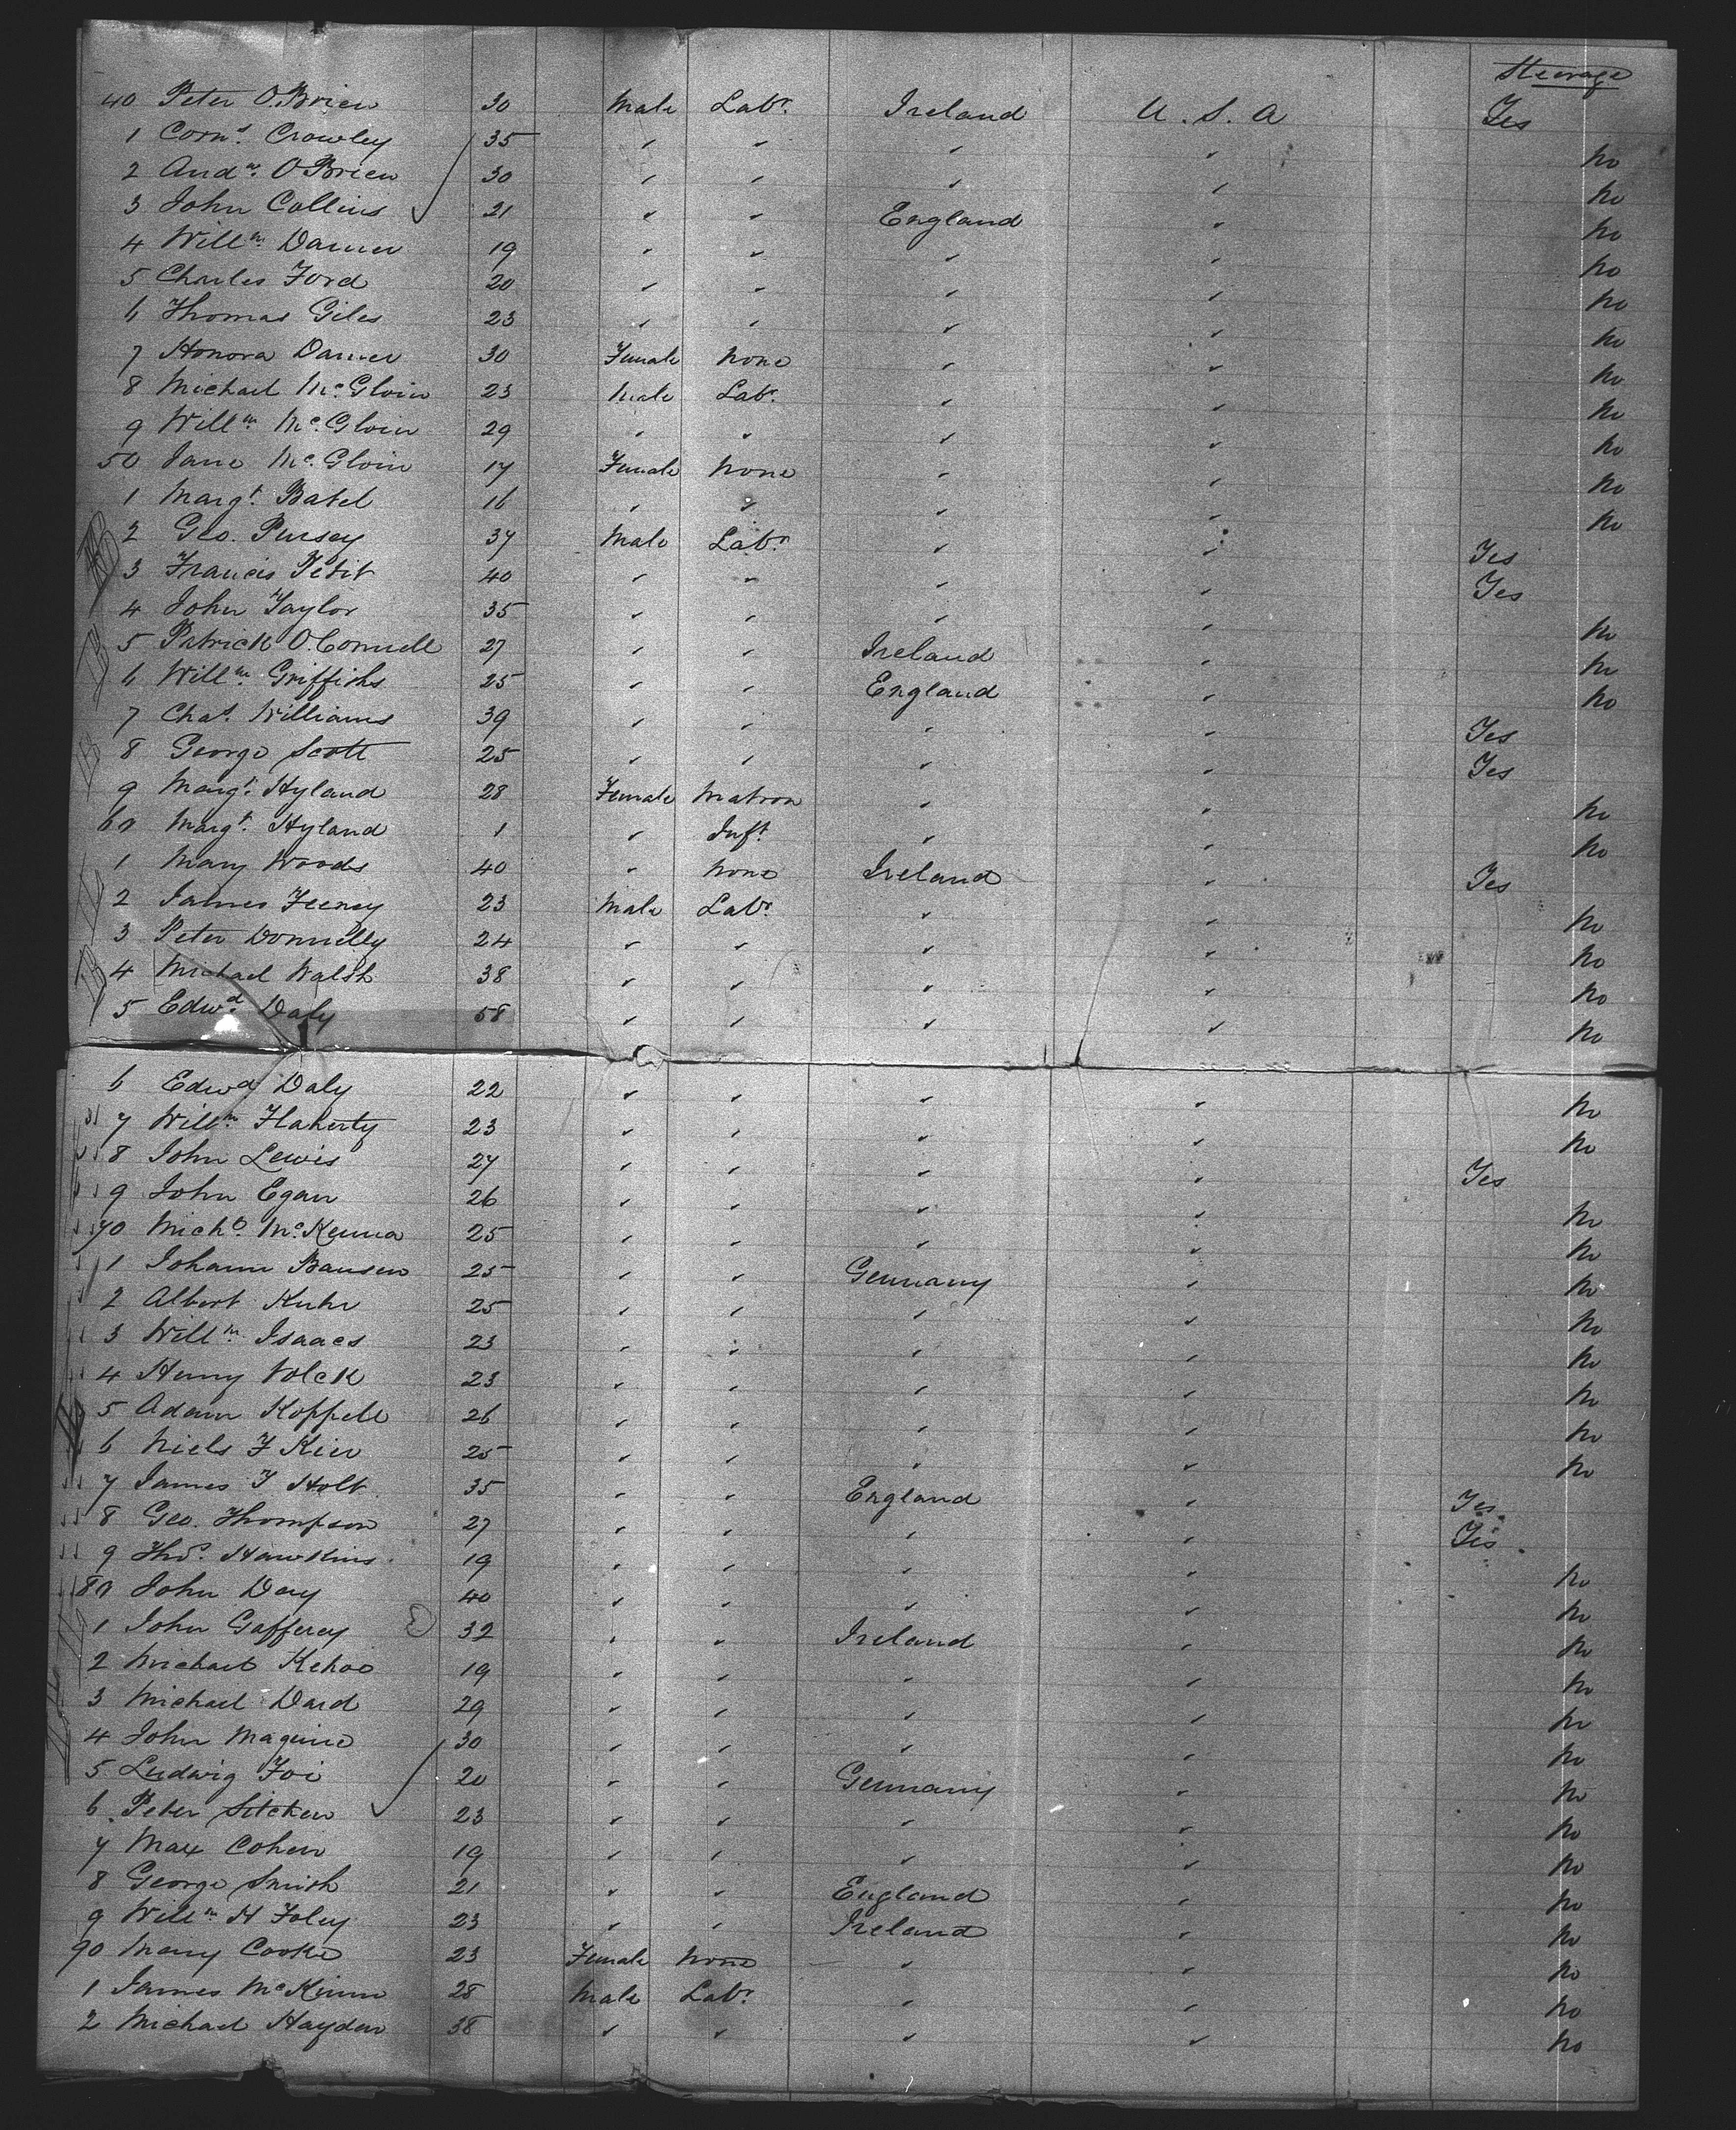 Steerage
40 Peter O'Brien 30 Male Labr. Ireland U. S. A Yes
1 Corns. Crowley 35 " " " " No
2 Andw. O'Brien 30 " " " " No
3 John Collins 21 " " England " No
4 Willm. Darner 19 " " " " No
5 Charles Ford 20 " " " " No
6 Thomas Giles 23 " " " " No
7 Honora Darner 30 Female None " " No
8 Michael McGloin 23 Male Labr. " " No
9 Willm. McGloin 29 " " " " No
50 Jane McGloin 17 Female None " " No
1 Margt. Batel 16 " " " " No
2 Geo. Pursey 37 Male Labr. " " Yes
3 Francis Petit 40 " " " " Yes
4 John Taylor 35 " " " " No
5 Patrick O.Connell 27 " " Ireland " No
6 Willm. Griffiths 25 " " England " No
7 Chas. Williams 39 " " " " Yes
8 George Scott 25 " " " " Yes
9 Margt. Hyland 28 Female Matron " " No
60 Margt. Hyland 1 " Inft. " " No
1 Mary Woods 40 " None Ireland " Yes
2 James Feeney 23 Male Labr. " " No
3 Peter Donnelly 24 " " " " No
4 Michael Walsh 38 " " " " No
5 Edwd. Daly 58 " " " " No
6 Edwd Daly 22 " " " " No
7 Willm. Flaherty 23 " " " " No
8 John Lewis 27 " " " " Yes
9 John Egan 26 " " " " No
70 Michl. McKenna 25 " " " " No
1 Johann Bausen 25 " " Germany " No
2 Albert Kuhn 25 " " " " No
3 Willm. Isaacs 23 " " " " No
4 Henry Volck 23 " " " " No
5 Adam Koppell 26 " " " " No
6 Niels F Kier 25 " " " " No
7 James T Holt 35 " " England " Yes
8 Geo. Thompson 27 " " " " Yes
9 Thos. Hawkins 19 " " " " No
80 John Day 40 " " " " No
1 John Gafferey 32 " " Ireland " No
2 Michael Kehoe 19 " " " " No
3 Michael Dard 29 " " " " No
4 John Maguire 30 " " " " No
5 Ludwig Foi 20 " " Germany " No
6 Peter Sitchen 23 " " " " No
7 Max Cohen 19 " " " " No
8 George Smith 21 " " England " No
9 Willm. H Foley 23 " " Ireland " No
90 Mary Cooke 23 Female None " " No
1 James McKinn 28 Male Labr. " " No
2 Michael Hayden 38 " " " " No